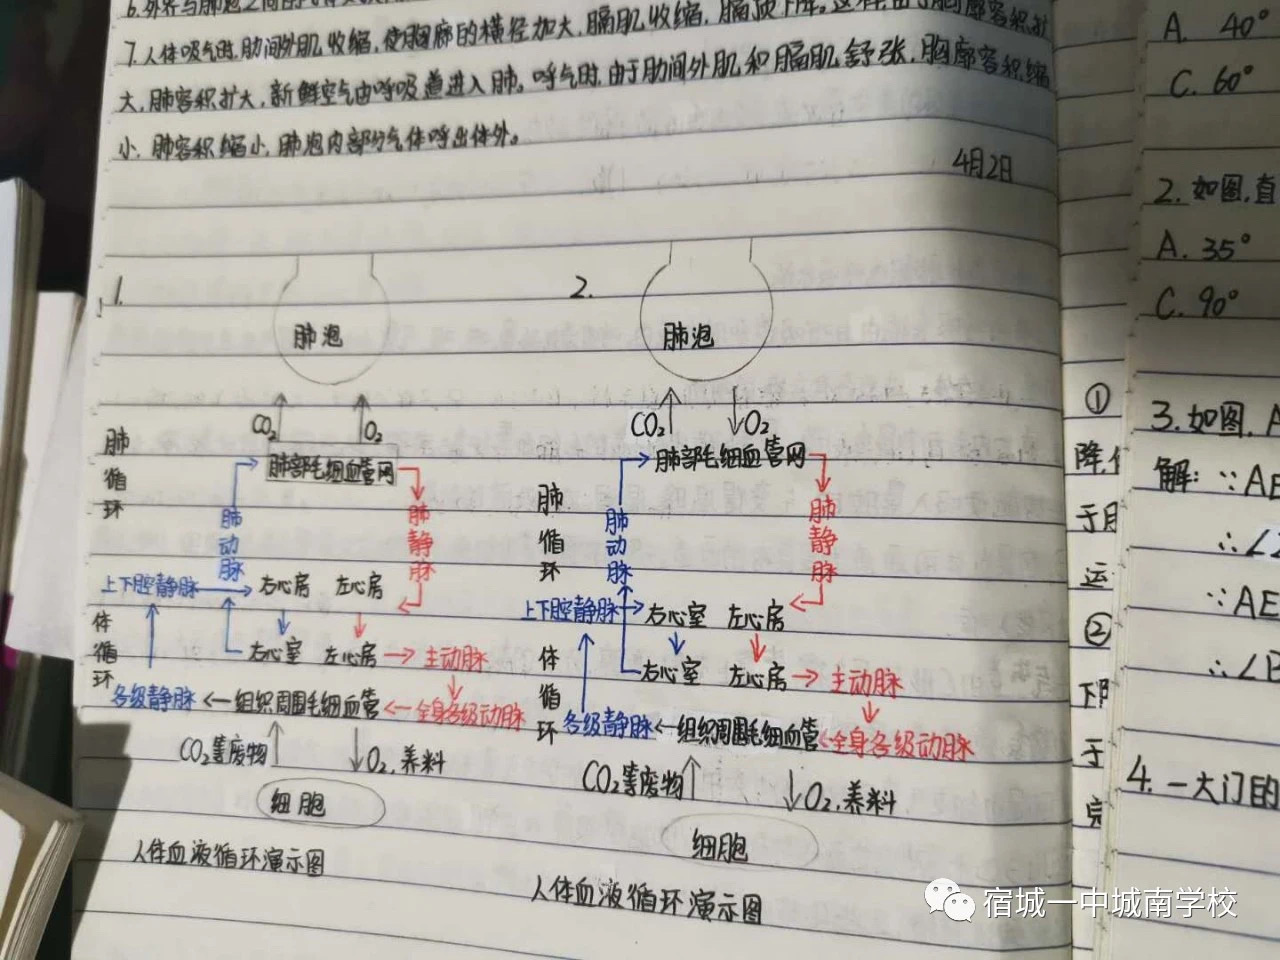 6.外界与肺泡之间的
7.人体吸气时,肋间外肌收缩,使胸廓的横径加大,膈肌收缩,膈顶下降。这样,由于胸廓容积扩
大,肺容积扩大,新鲜空气由呼吸道进入肺。呼气时,由于肋间外肌和膈肌舒张,胸廓容积缩
小,肺容积缩小,肺泡内部分气体呼出体外。
4月2日
1.
肺泡
CO₂ O₂
肺循环
肺部毛细血管网
肺动脉
肺静脉
上下腔静脉 右心房 左心房
体循环
右心室 左心房 主动脉
各级静脉 组织周围毛细血管 全身各级动脉
CO₂等废物 O₂,养料
细胞
人体血液循环演示图
2.
肺泡
CO₂ O₂
肺循环
肺部毛细血管网
肺动脉
肺静脉
上下腔静脉 右心室 左心房
体循环
右心室 左心房 主动脉
各级静脉 组织周围毛细血管 全身各级动脉
CO₂等废物 O₂,养料
细胞
人体血液循环演示图
①
降,
于
运
②
下
于
完
A. 40°
C. 60°
2. 如图,直
A. 35°
C. 90°
3. 如图, A
解: ∵AE
∴∠
∵AE
∴∠E
4. 一大门的
宿城一中城南学校